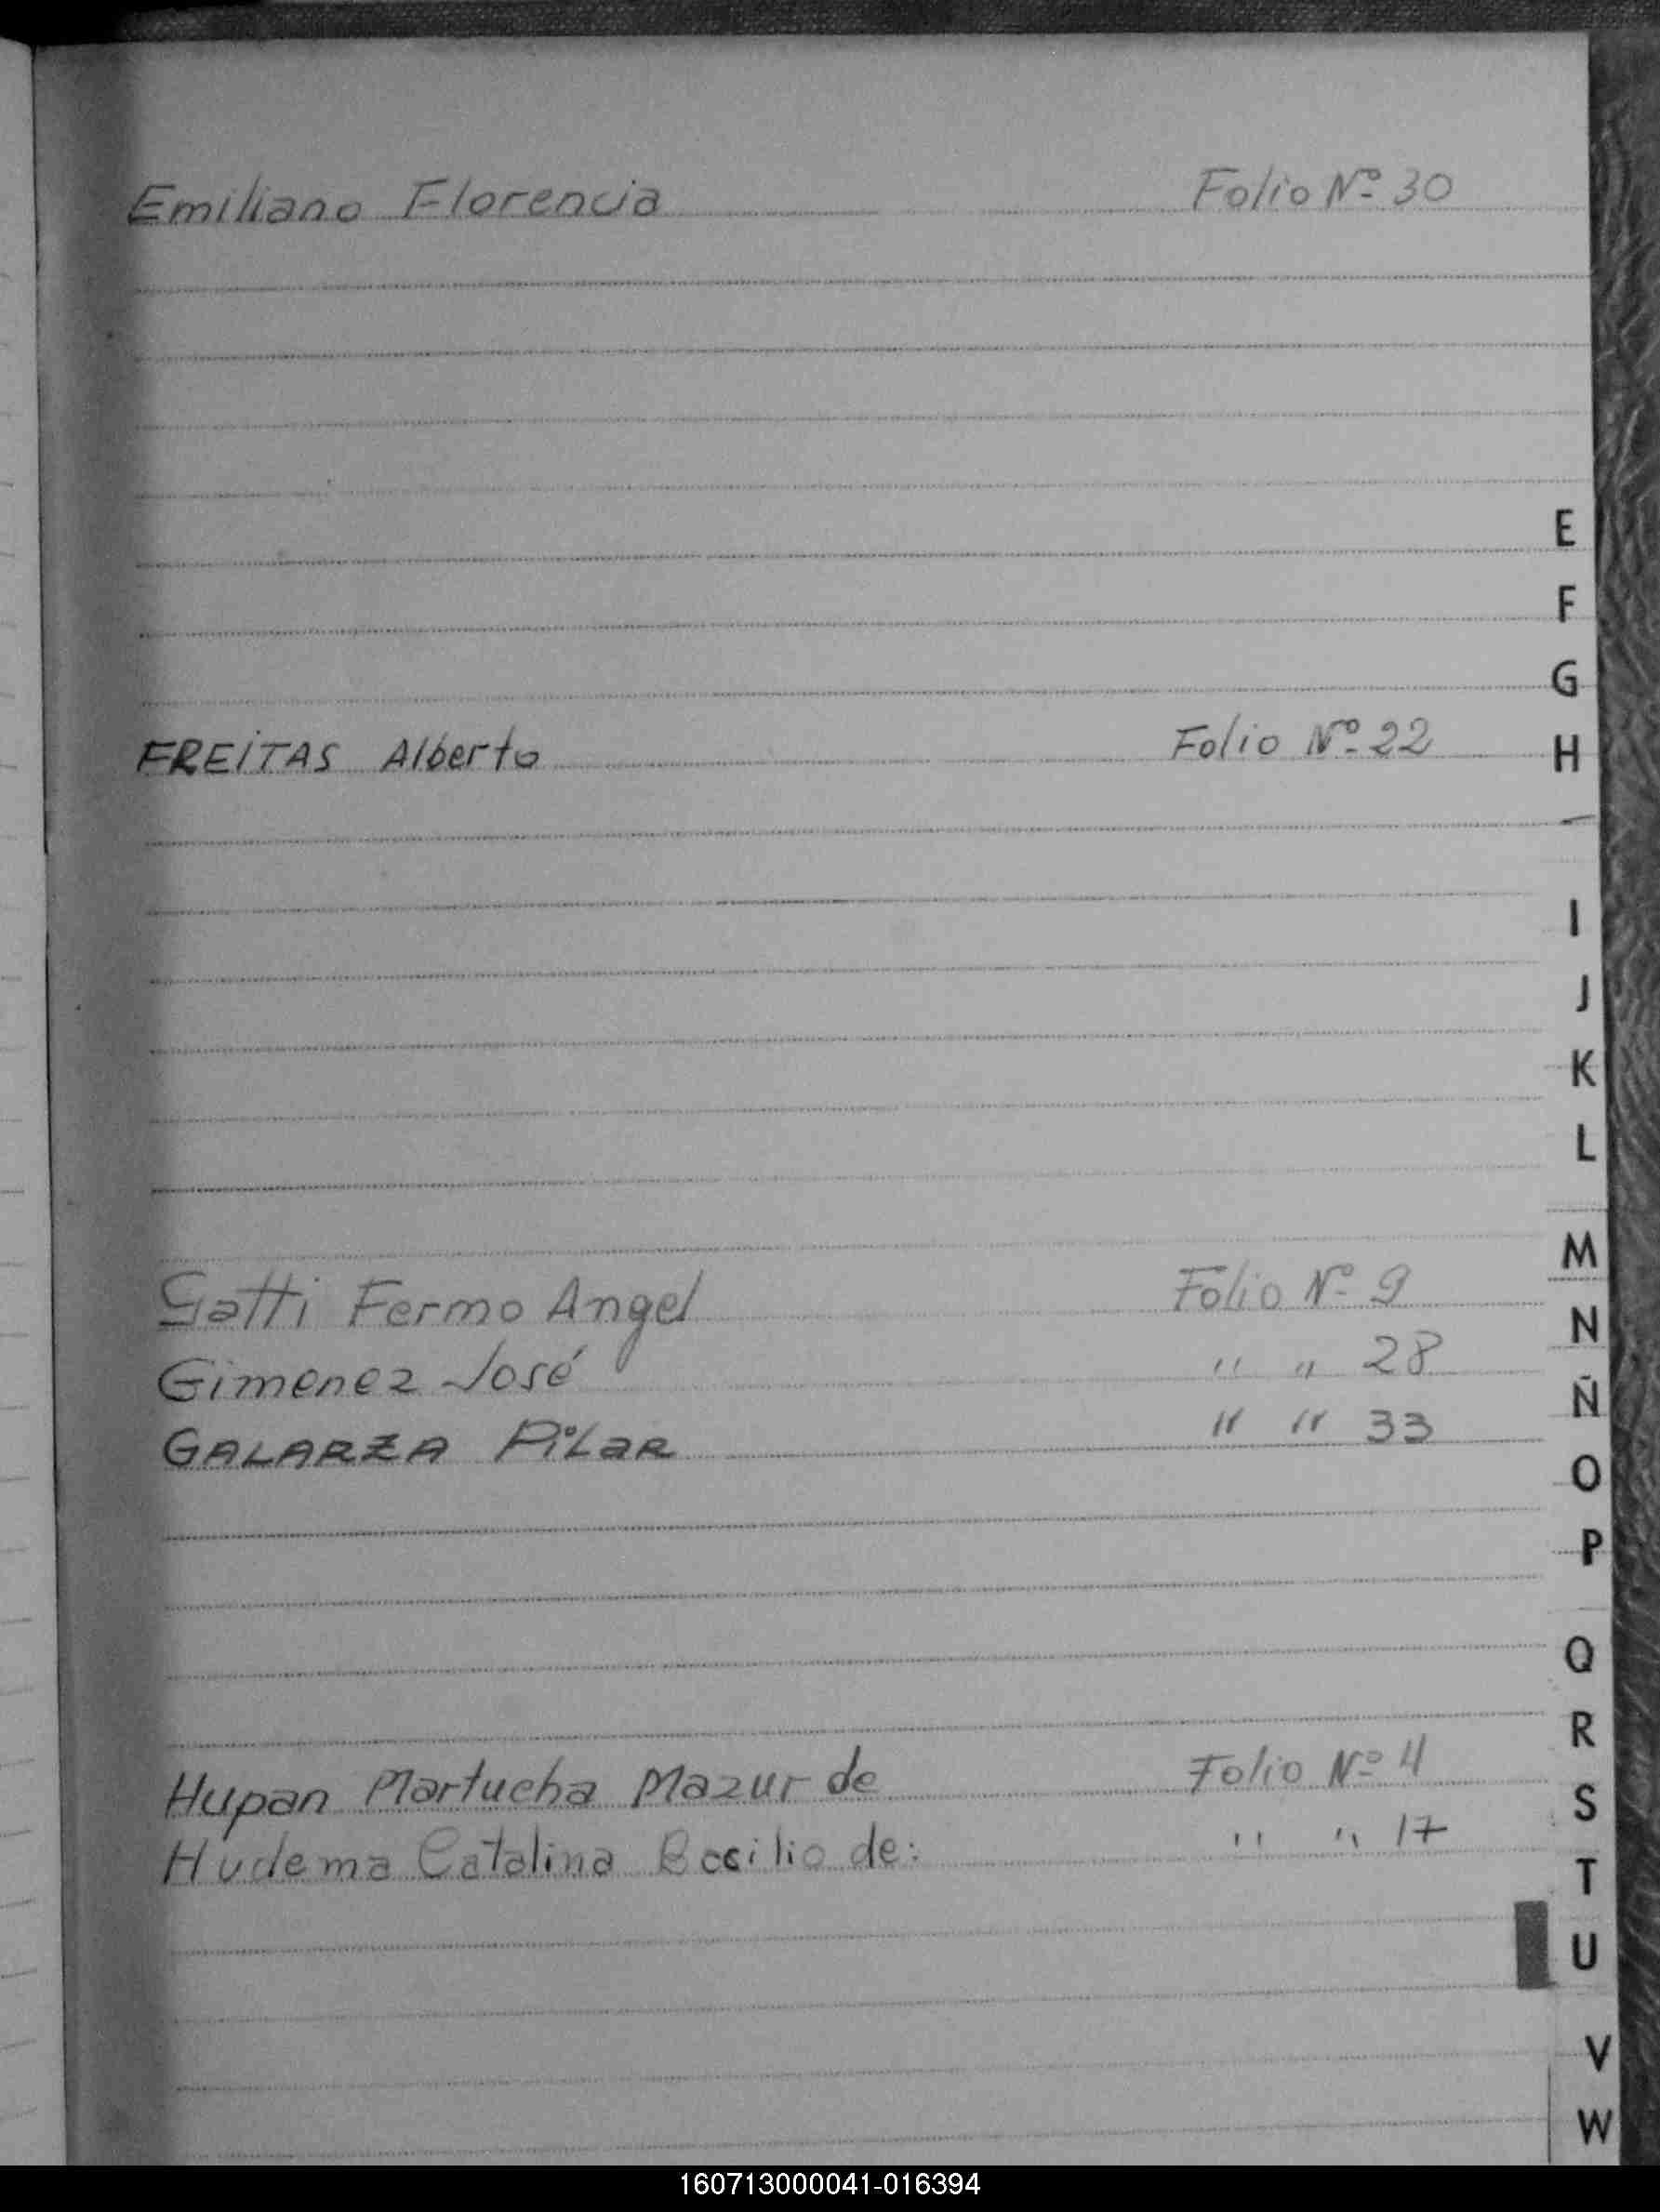 Emiliano Florencia Folio Nº 30
E
F
G
FREITAS Alberto Folio Nº 22
H
I
J
K
L
M
Gatti Fermo Angel Folio Nº 9
N
Gimenez José " " 28
Ñ
GALARZA PiLaR " " 33
O
P
Q
R
Hupan Martucha Mazur de Folio Nº 4
S
Hudema Catalina de: " " 17
T
U
V
W
160713000041-016394